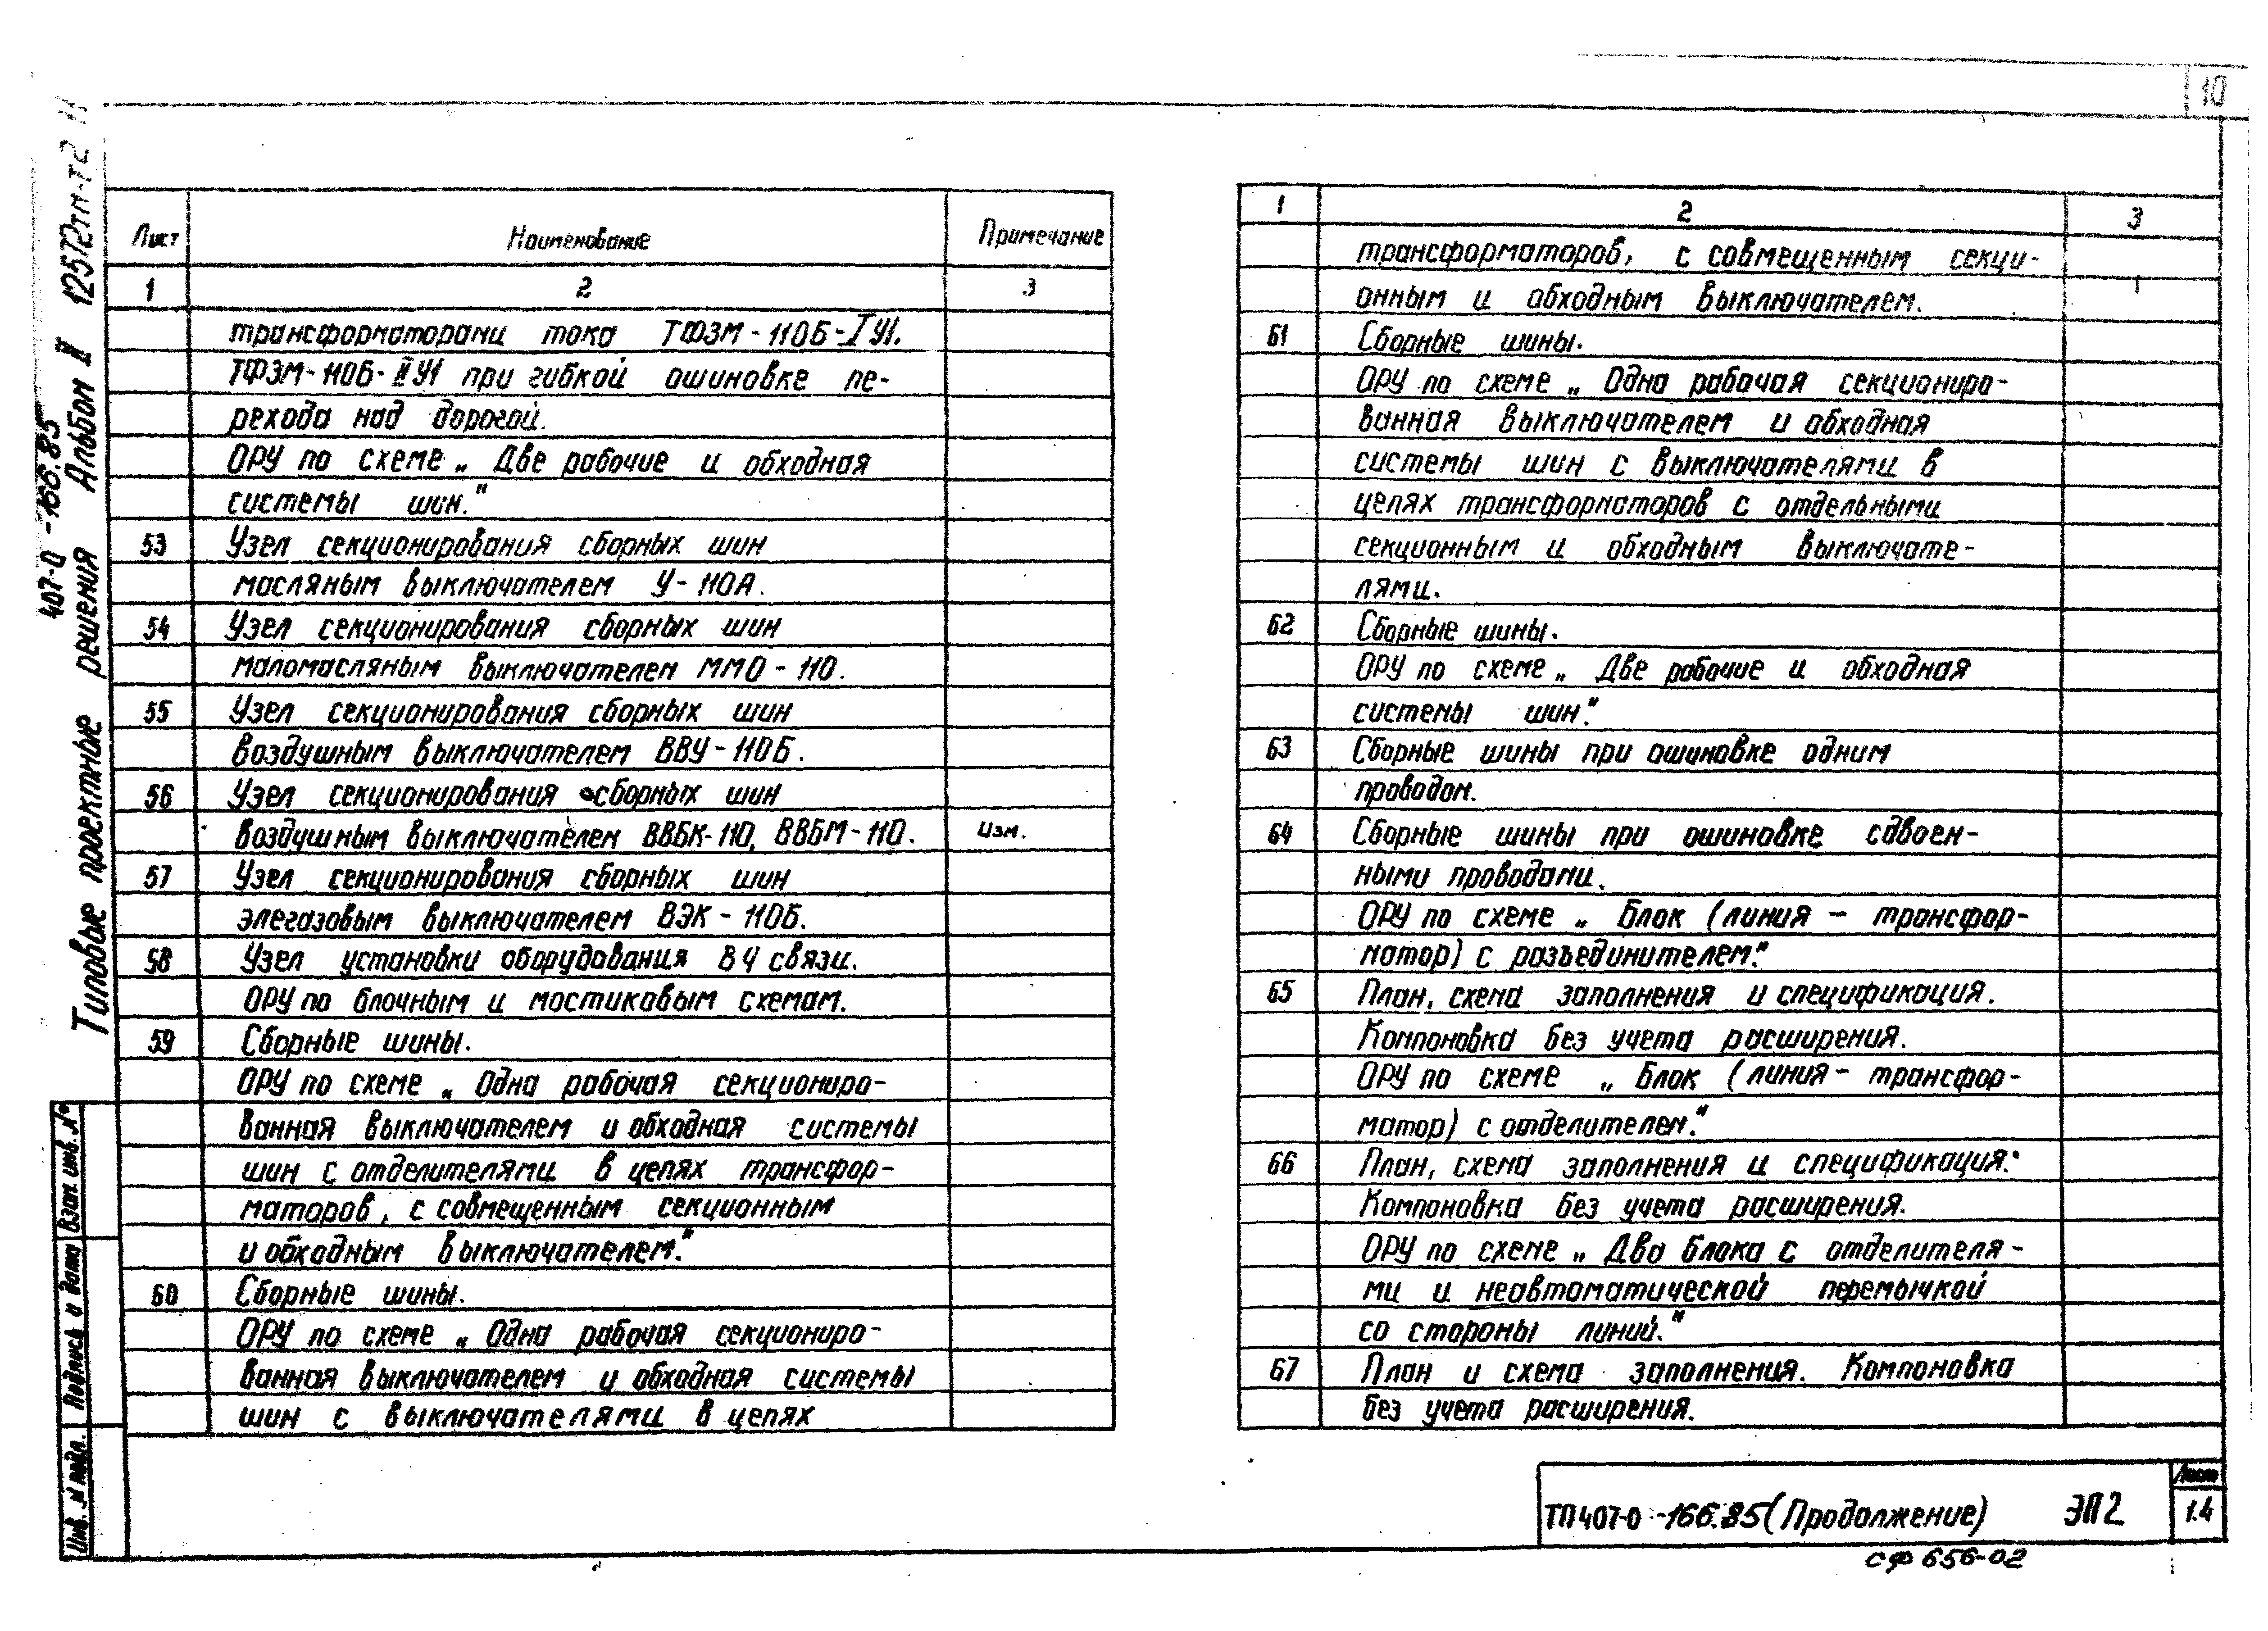 10
407-0-166.85
Типовые проектные решения Альбом II 12572тм-т2
Лист Наименование Примечание
1 2 3
трансформаторами тока ТФЗМ-110Б-IУ1.
ТФЗМ-110Б-IIУ1 при гибкой ошиновке пе-
рехода над дорогой.
ОРУ по схеме „Две рабочие и обходная
системы шин."
53 Узел секционирования сборных шин
масляным выключателем У-110А.
54 Узел секционирования сборных шин
маломасляным выключателем ММО-110.
55 Узел секционирования сборных шин
воздушным выключателем ВВУ-110Б.
56 Узел секционирования сборных шин
воздушным выключателем ВВБК-110, ВВБМ-110. Изм.
57 Узел секционирования сборных шин
элегазовым выключателем ВЭК-110Б.
58 Узел установки оборудования ВЧ связи.
ОРУ по блочным и мостиковым схемам.
59 Сборные шины.
ОРУ по схеме „Одна рабочая секциониро-
ванная выключателем и обходная системы
шин с отделителями в цепях трансфор-
маторов, с совмещенным секционным
и обходным выключателем."
60 Сборные шины.
ОРУ по схеме „Одна рабочая секциониро-
ванная выключателем и обходная системы
шин с выключателями в цепях
1 2 3
трансформаторов, с совмещенным секци-
онным и обходным выключателем.
61 Сборные шины.
ОРУ по схеме „Одна рабочая секциониро-
ванная выключателем и обходная
системы шин с выключателями в
цепях трансформаторов с отдельными
секционным и обходным выключате-
лями.
62 Сборные шины.
ОРУ по схеме „Две рабочие и обходная
системы шин."
63 Сборные шины при ошиновке одним
проводом.
64 Сборные шины при ошиновке сдвоен-
ными проводами.
ОРУ по схеме „Блок (линия - трансфор-
матор) с разъединителем."
65 План, схема заполнения и спецификация.
Компоновка без учета расширения.
ОРУ по схеме „Блок (линия - трансфор-
матор) с отделителем."
66 План, схема заполнения и спецификация.
Компоновка без учета расширения.
ОРУ по схеме „Два блока с отделителя-
ми и неавтоматической перемычкой
со стороны линий."
67 План и схема заполнения. Компоновка
без учета расширения.
Взам. инв. №
Подпись и дата
Инв. № подл.
ТП 407-0-166.85 (Продолжение) ЭП2
Лист
1.4
сф 656-02